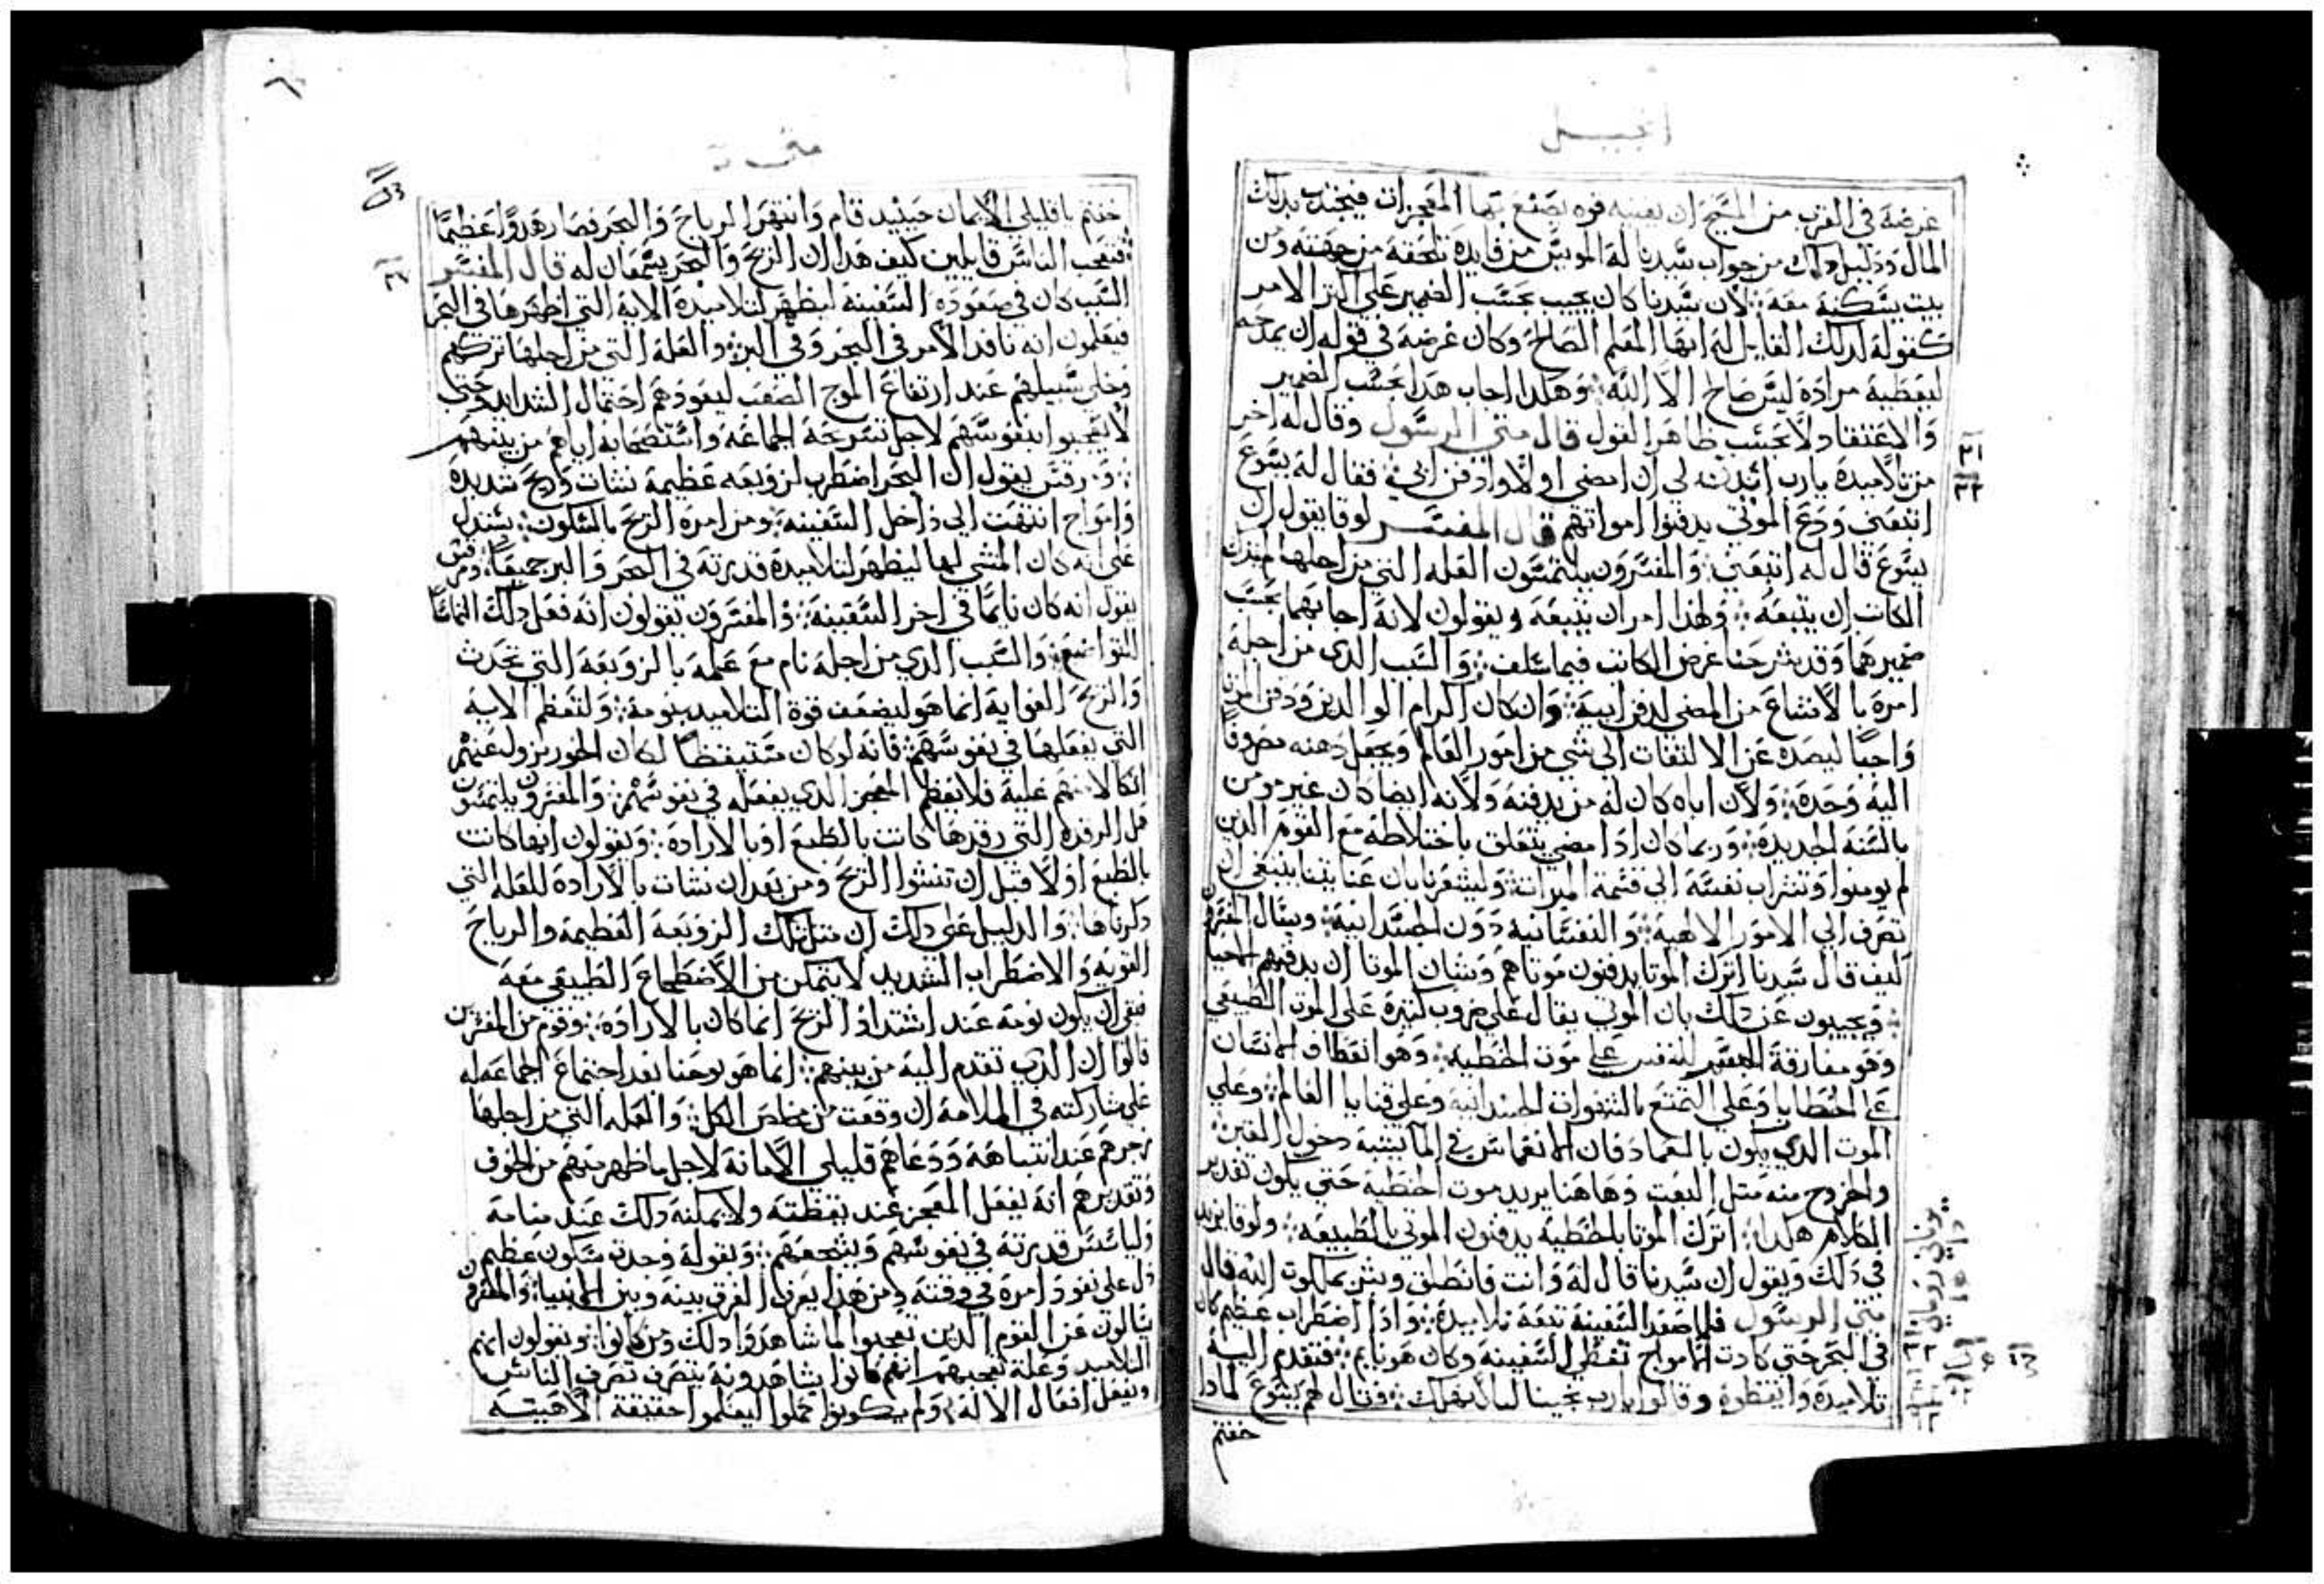 انجيل
غرضه في القرب من المسيح ان يعينه قوه يصنع بها المعجزات فيجتذب بذلك
المال ودليل ذلك من جواب سيدنا له الموبس من فايدة تلحقه من جهته ومن
بيت يسكنه معه لان سيدنا كان يجيب بحسب الضمير على اكثر الامر
كقوله لذلك القايل له ايها المعلم الصالح وكان غرضه في قوله ان يمدحه
ليعطيه مراده ليس صالح الا الله وهكذا اجاب هذا بحسب الضمير
والاعتقاد لا بحسب ظاهر القول قال متى الرسول وقال له اخر
من تلاميذه يارب ائذن لي ان امضي اولا وادفن ابي فقال له يسوع
اتبعني ودع الموتى يدفنوا امواتهم قال المفسر لوقا يقول ان
يسوع قال له اتبعني والمفسرون يلتمسون العله التي من اجلها لم يترك
الكاتب ان يتبعه ولهذا امر ان يتبعه ويقولون لانه اجابهما بحسب
ضميرهما وقد شرحنا غرض الكاتب فيما سلف والسبب الذي من اجله
امره بالامتناع من المضي لدفن ابيه وان كان اكرام الوالدين ودفن
واجبا ليصده عن الالتفات الى شي من امور العالم ويجعل ذهنه مصروفا
اليه وحده ولان اباه كان له من يدفنه ولانه ايضا كان غير مومن
بالسنه الجديده وربما كان اذا مضي يتعلق باختلاطه مع القوم الذين
لم يومنوا وتشراب نفسه الى قسمة الميراث وليشعرنا بان عنايتنا ينبغي ان
تصرف الي الامور الالهيه والنفسانيه دون الجسدانيه ويسال المفسرون
كيف قال سيدنا اترك الموتا يدفنون موتاهم وشان الموتا ان يدفنهم الاحيا
ويجيبون عن ذلك بان الموت يقال على ضروب كثيرة على الموت الطبيعي
وهو مفارقة النفس على موت الخطيه وهو انعطاف الانسان
على الخطايا وعلى التمتع بالشهوات الجسدانيه وعلى قنايا العالم وعلى
الموت الذي يكون بالعماد فان الانغماس في الما يشبه دخول المقبره
والخروج منه مثل البعث وهاهنا يريد موت الخطيه حتى يكون تقدير
الكلام هكذا اترك الموتا بالخطيه يدفنون الموتى بالطبيعه ولوقا يزيد
في ذلك ويقول ان سيدنا قال له وانت فانطلق وبشر بملكوت الله قال
متى الرسول فلما صعد السفينة تبعه تلاميذه واذا اضطراب عظيم كان
في البحر حتى كادت الامواج تغطي السفينه وكان هو نايم فتقدم اليه
تلاميذه وايقظوه وقالوا يارب نجينا ليلا نهلك فقال لهم يسوع لماذا
خفتم
متى
خفتم ياقليلي الايمان حينيد قام وانتهر الرياح والبحر فصار هدوا عظيما
فتعجب الناس قايلين كيف هذا ان الريح والبحر يسمعان له قال المفسر
السبب كان في صعوده السفينة ليظهر لتلاميذه الاية التي اظهرها في البحر
فيعلمون انه نافد الامر في البحر وفي البر والعله التي من اجلها تركهم
وخلى سبيلهم عند ارتفاع الموج الصعب ليعودهم احتمال الشدايد حتى
لا يعجبوا بنفوسهم لاجل تسريحه الجماعه واستصحابه اياهم من بينهم
ومرقس يقول ان البحر اضطرب لزوبعه عظيمة نشات وريح شديدة
وامواج انتهت الي داخل السفينه ومن امره الريح بالسكون يستدل
على انه كان المنشي لها ليظهر لتلاميذه قدرته في البحر والبر جميعا ومرقس
يقول انه كان نايما في اخر السفينه والمفسرون يقولون انه فعل ذلك التماسا
للتواضع والسبب الذي من اجله نام مع علمه بالزوبعه التي تحدث
والريح العوايه انما هو ليضعف قوة التلاميد بنومه ولتعظم الاية
التي يفعلها في نفوسهم فانه لو كان متيقظا لكان الخور يزول عنهم
اتكالا منهم عليه فلا يعظم المعجز الذي يفعله في نفوسهم والمفسرون يلتمسون
هل الرقدة التي رقدها كانت بالطبع او بالارادة ويقولون انها كانت
بالطبع اولا قبل ان تنشوا الريح ومن بعد ان نشات بالارادة للعله التي
ذكرناها والدليل على ذلك ان مثل تلك الزوبعه العظيمة والرياح
القويه والاضطراب الشديد لا يتمكن من الاضطجاع الطبيعي معه
فبقي ان يكون نومه عند اشتداد الريح انما كان بالارادة وقوم من المفسرين
قالوا ان الذي تقدم اليه من بينهم انما هو يوحنا بعد اجتماع الجماعه له
على مشاركته في الملامة ان وقعت من مخلص الكل والعله التي من اجلها
زجرهم عند انتباهه ودعاهم قليلي الامانة لاجل ما ظهر منهم من الخوف
وتقديرهم انه يفعل المعجز عند يقظته ولا يمكنه ذلك عند منامه
وليا سس قدرته في نفوسهم ويشجعهم وبقوله وحدث سكون عظيم
دل على نفود امره في وقته ومن هذا يعرف الفرق بينه وبين الانبيا والمفسرون
يسالون عن القوم الذين تعجبوا لما شاهدوا ذلك ومن كانوا ويقولون انهم
التلاميد وعلة تعجبهم انهم كانوا يشاهدونه يتصرف تصرف الناس
ويفعل افعال الاله ولم يكونوا كملوا ليعلموا حقيقة الاهيته